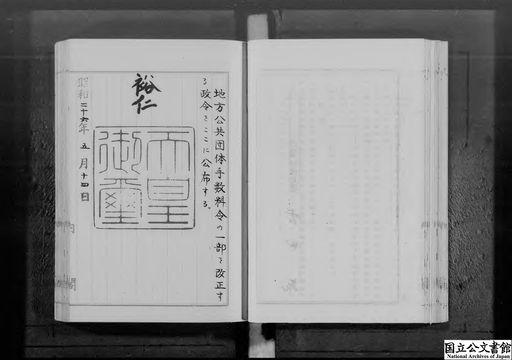 地方公共団体手数料令の一部を改正す
る政令をここに公布する。
裕仁
天皇
御璽
昭和二十六年五月十四日
内閣
国立公文書館
National Archives of Japan